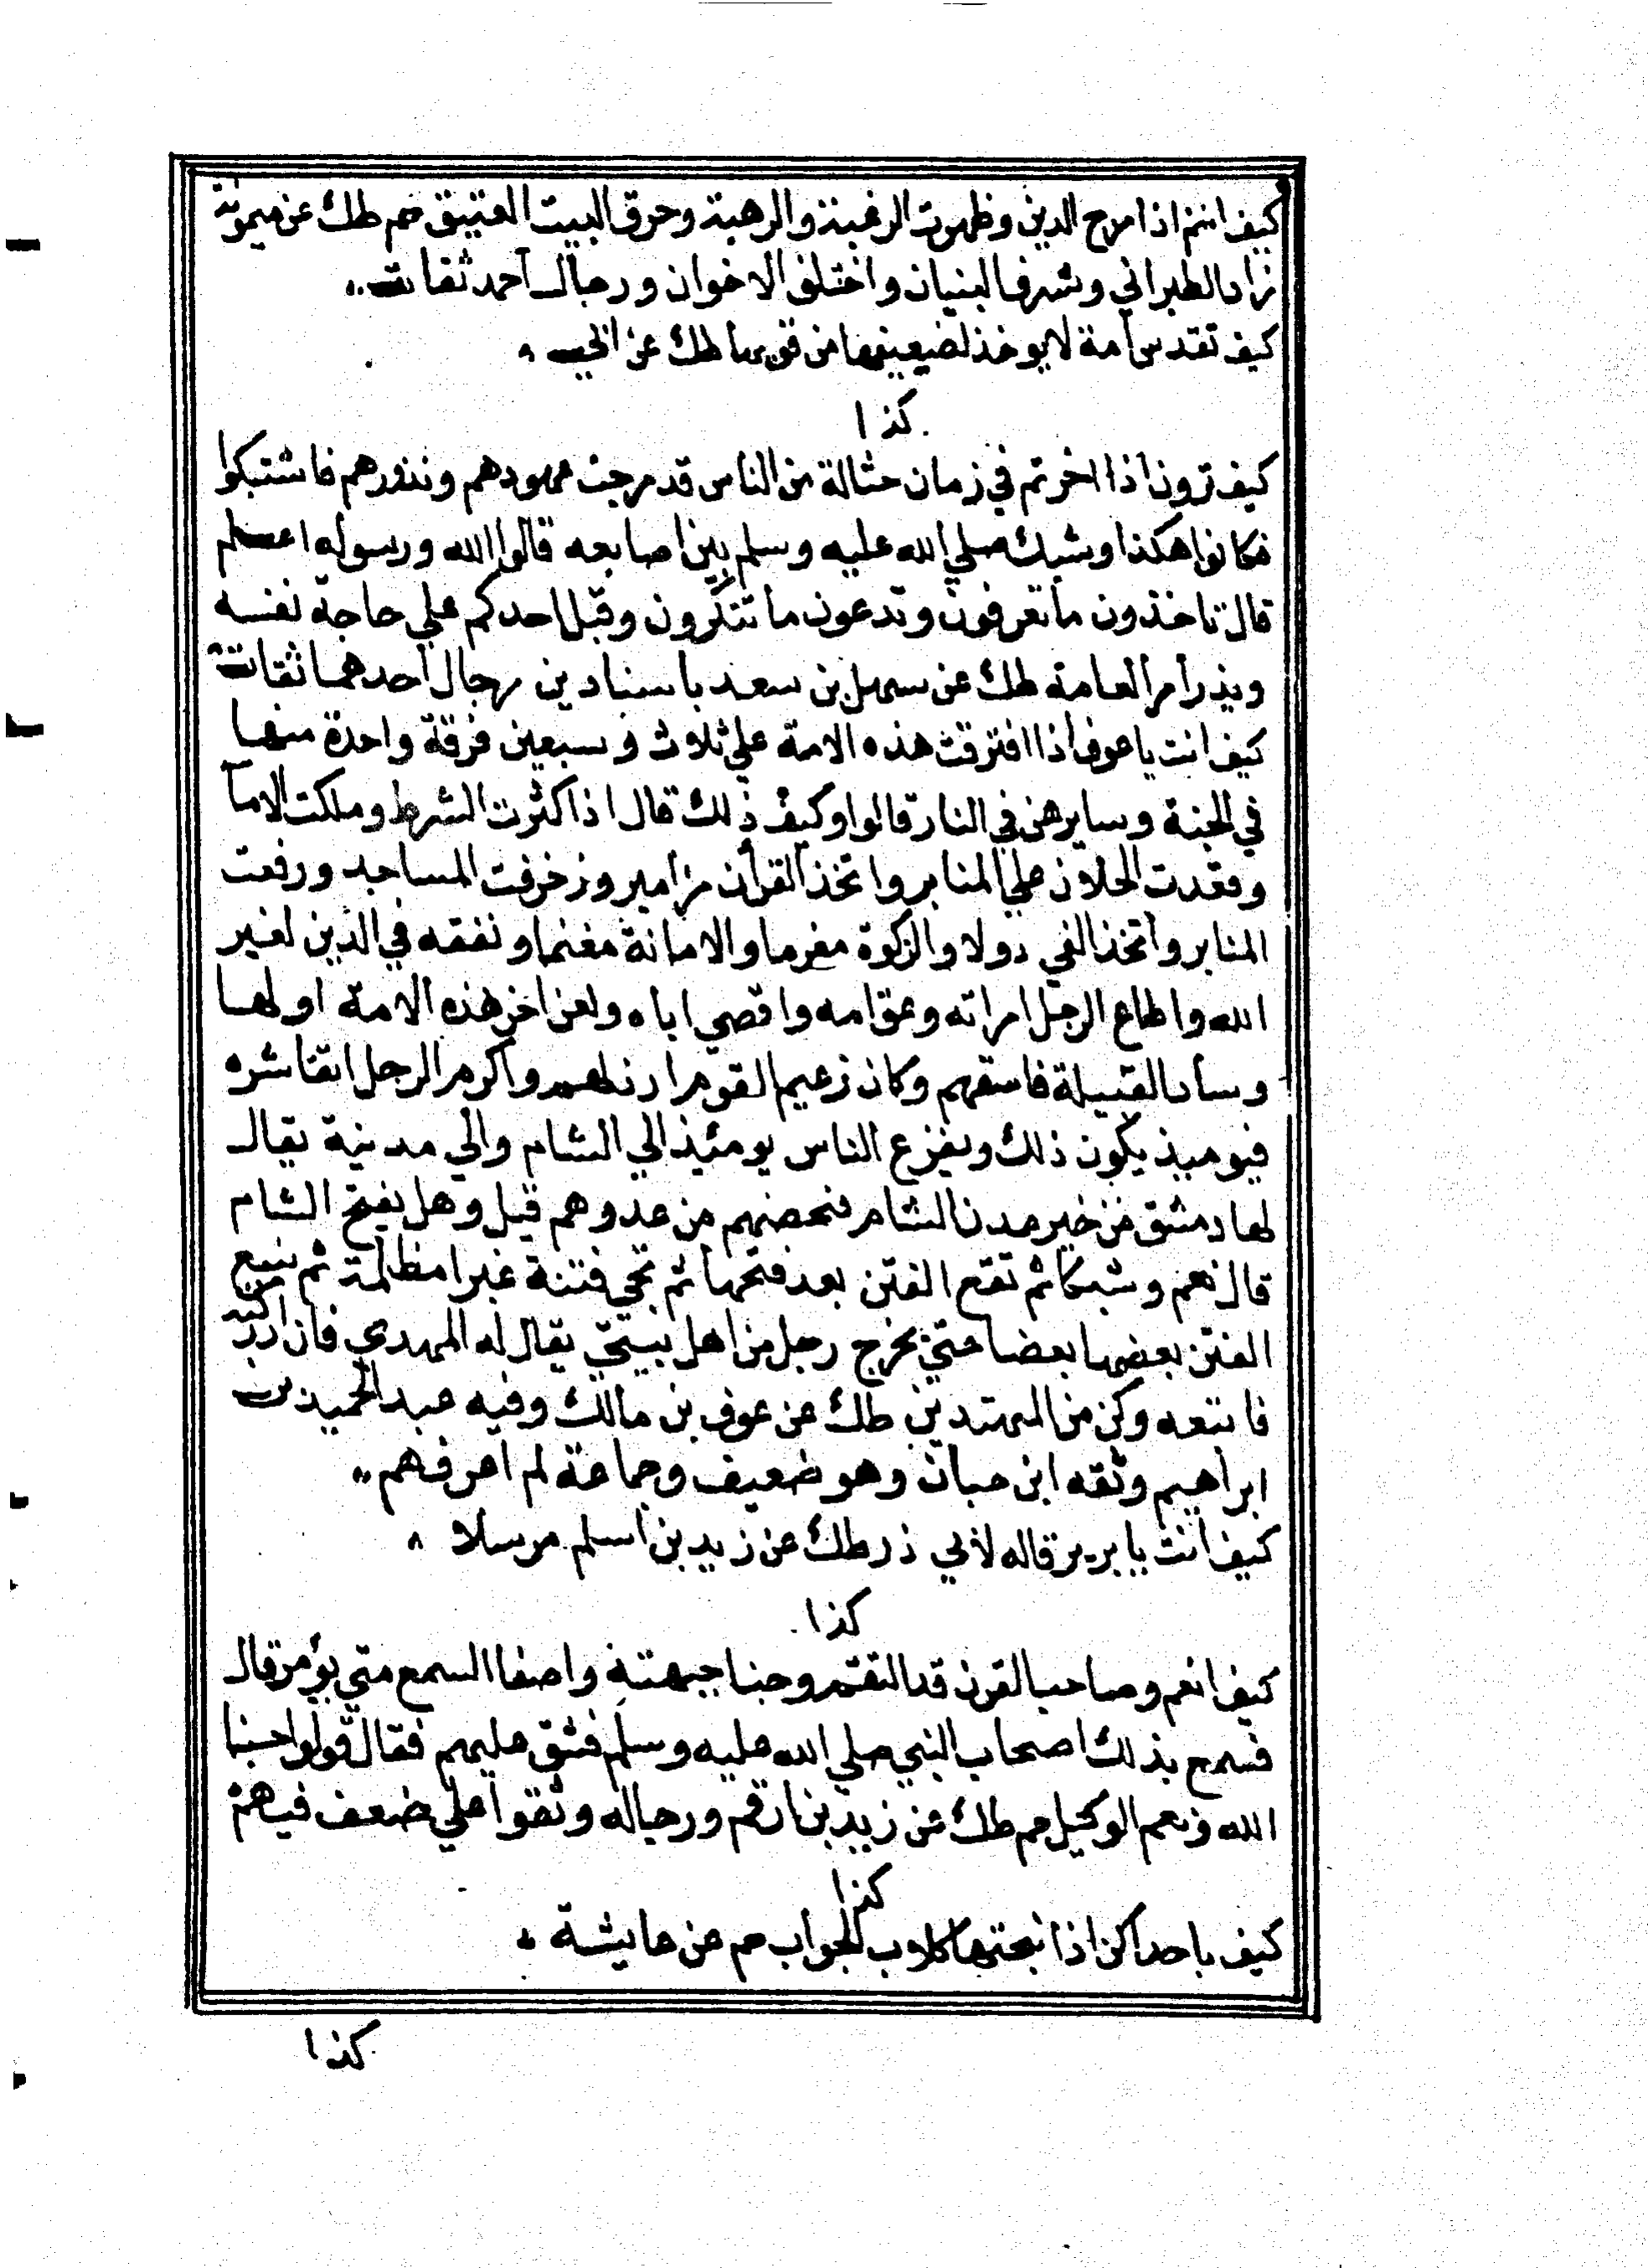 كيف انتم اذا مرج الدين وظهرت الرغبة والرهبة وحرق البيت العتيق حم طك عن ميمونة
زاد الطبراني وشرف البنيان واختلف الاخوان ورجال احمد ثقات
كيف تقدس امة لا يوخذ لضعيفها من قويها طك عن
كذا
كيف ترون اذا اخرتم في زمان حثالة من الناس قد مرجت عهودهم ونذورهم فاشتبكوا
فكانوا هكذا وشبك صلي الله عليه وسلم بين اصابعه قالوا الله ورسوله اعلم
قال تاخذون ما تعرفون وتدعون ما تنكرون وقبل احدكم علي حاجة نفسه
ويذر امر العامة طك عن سهل بن سعد باسنادين رجال احدهما ثقات
كيف انت يا عوف اذا افترقت هذه الامة علي ثلاث وسبعين فرقة واحدة منها
في الجنة وسايرهن في النار قالوا وكيف ذلك قال اذا كثرت الشرط وملكت الاما
وقعدت الحلان علي المنابر واتخذ القرآن مزامير وزخرفت المساجد ورفعت
المنابر واتخذ الفي دولا والزكوة مغرما والامانة مغنما وتفقه في الدين لغير
الله واطاع الرجل امراته وعق امه واقصي اباه ولعن اخر هذه الامة اولها
وساد القبيلة فاسقهم وكان زعيم القوم ارذلهم واكرم الرجل اتقا شره
فيوميذ يكون ذلك ويفزع الناس يومئيذ الي الشام والي مدينة يقال
لها دمشق من خير مدن الشام فتحصنهم من عدوهم قيل وهل يفتح الشام
قال نعم وشيكا ثم تقع الفتن بعد فتحها ثم تجي فتنة غبرا مظلمة ثم يتبع
الفتن بعضها بعضا حتي يخرج رجل من اهل بيتي يقال له المهدي فان ادركته
فاتبعه وكن من المهتدين طك عن عوف بن مالك وفيه عبد الحميد بن
ابراهيم وثقه ابن حبان وهو ضعيف وجماعة لم اعرفهم
كيف انت يا برير قاله لابي ذر طك عن زيد بن اسلم مرسلا
كذا
كيف انعم وصاحب القرن قد التقم وحنا جبهته واصغا السمع متي يؤمر قال
فسمع بذلك اصحاب النبي صلي الله عليه وسلم فشق عليهم فقال قولوا حسبنا
الله ونعم الوكيل حم طك عن زيد بن ارقم ورجاله وثقوا علي ضعف فيهم
كذا
كيف باحداكن اذا نبحتها كلاب الجواب حم عن عايشة
كذا